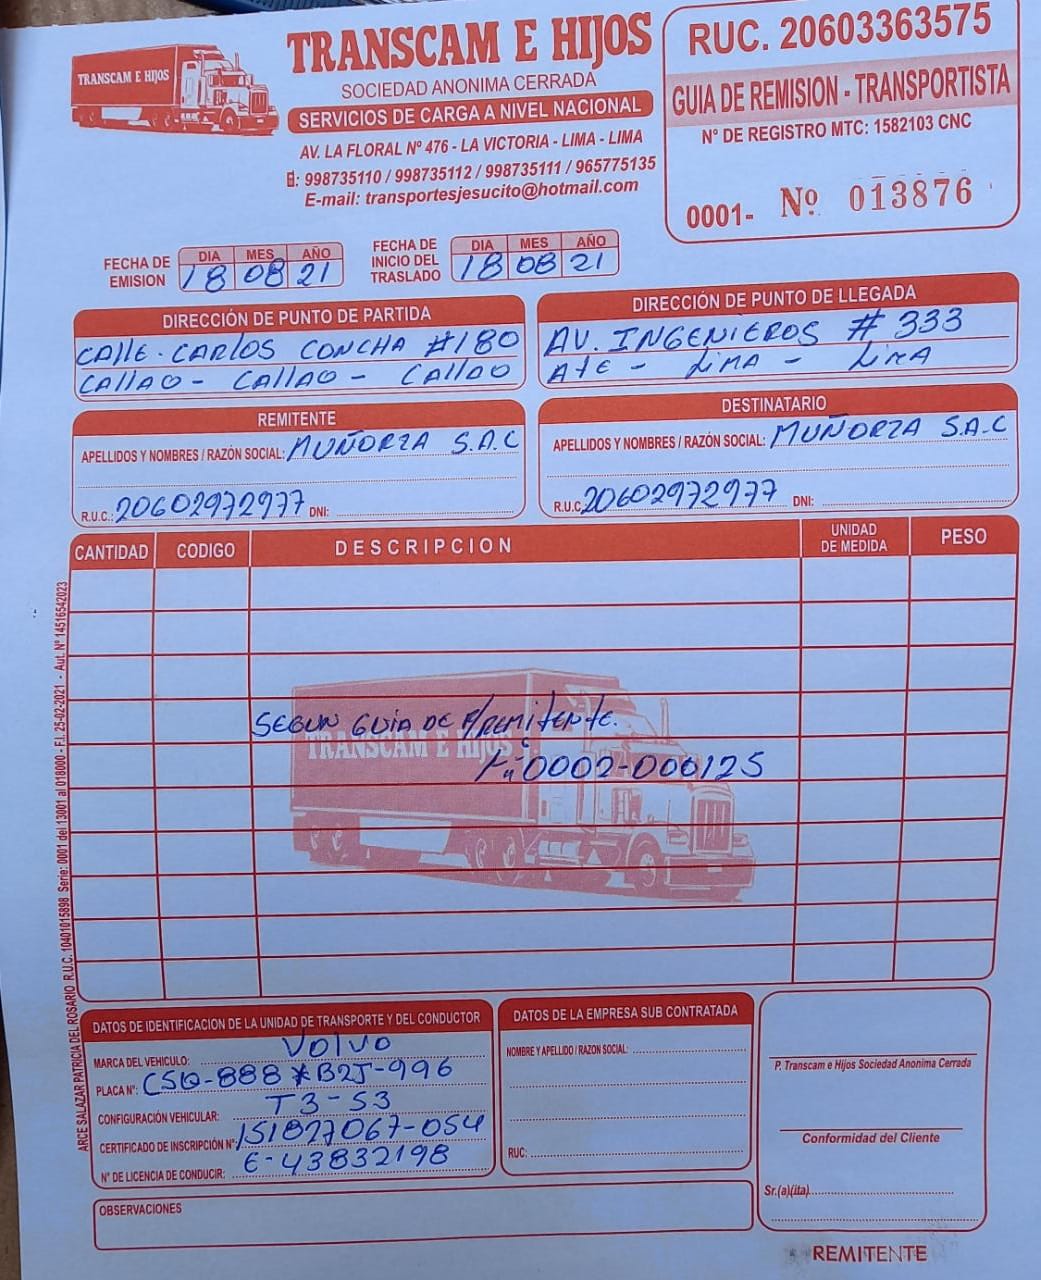 TRANSCAM E HIJOS
TRANSCAM E HIJOS
SOCIEDAD ANONIMA CERRADA
SERVICIOS DE CARGA A NIVEL NACIONAL
AV. LA FLORAL Nº 476 - LA VICTORIA - LIMA - LIMA
: 998735110 / 998735112 / 998735111 / 965775135
E-mail: transportesjesucito@hotmail.com
RUC. 20603363575
GUIA DE REMISION - TRANSPORTISTA
N° DE REGISTRO MTC: 1582103 CNC
0001- Nº 013876
FECHA DE EMISION DIA MES AÑO
18 08 21
FECHA DE INICIO DEL TRASLADO DIA MES AÑO
18 08 21
DIRECCIÓN DE PUNTO DE PARTIDA
CALLE. CARLOS CONCHA #180
CALLAO - CALLAO - CALLAO
DIRECCIÓN DE PUNTO DE LLEGADA
AV. INGENIEROS # 333
ATE - LIMA - LIMA
REMITENTE
APELLIDOS Y NOMBRES / RAZÓN SOCIAL: MUÑORZA S.A.C
R.U.C.: 20602972977 DNI:
DESTINATARIO
APELLIDOS Y NOMBRES / RAZÓN SOCIAL: MUÑORZA S.A.C
R.U.C. 20602972977 DNI:
CANTIDAD CODIGO DESCRIPCION UNIDAD DE MEDIDA PESO
SEGUN GUIA DE REMITENTE.
TRANSCAM E HIJOS
0002-000125
DATOS DE IDENTIFICACION DE LA UNIDAD DE TRANSPORTE Y DEL CONDUCTOR
MARCA DEL VEHICULO: VOLVO
PLACA Nº: C5Q-888 * B2J-996
CONFIGURACIÓN VEHICULAR: T3-S3
CERTIFICADO DE INSCRIPCIÓN Nº: 151827067-054
N° DE LICENCIA DE CONDUCIR: E-43832198
DATOS DE LA EMPRESA SUB CONTRATADA
NOMBRE Y APELLIDO / RAZON SOCIAL:
RUC:
P. Transcam e Hijos Sociedad Anonima Cerrada
Conformidad del Cliente
Sr.(a)(ita)
OBSERVACIONES
REMITENTE
ARCE SALAZAR PATRICIA DEL ROSARIO R.U.C. 10401015898 Serie: 0001 del 13001 al 018000 - F.I. 25-02-2021 - Aut. Nº 14516542023